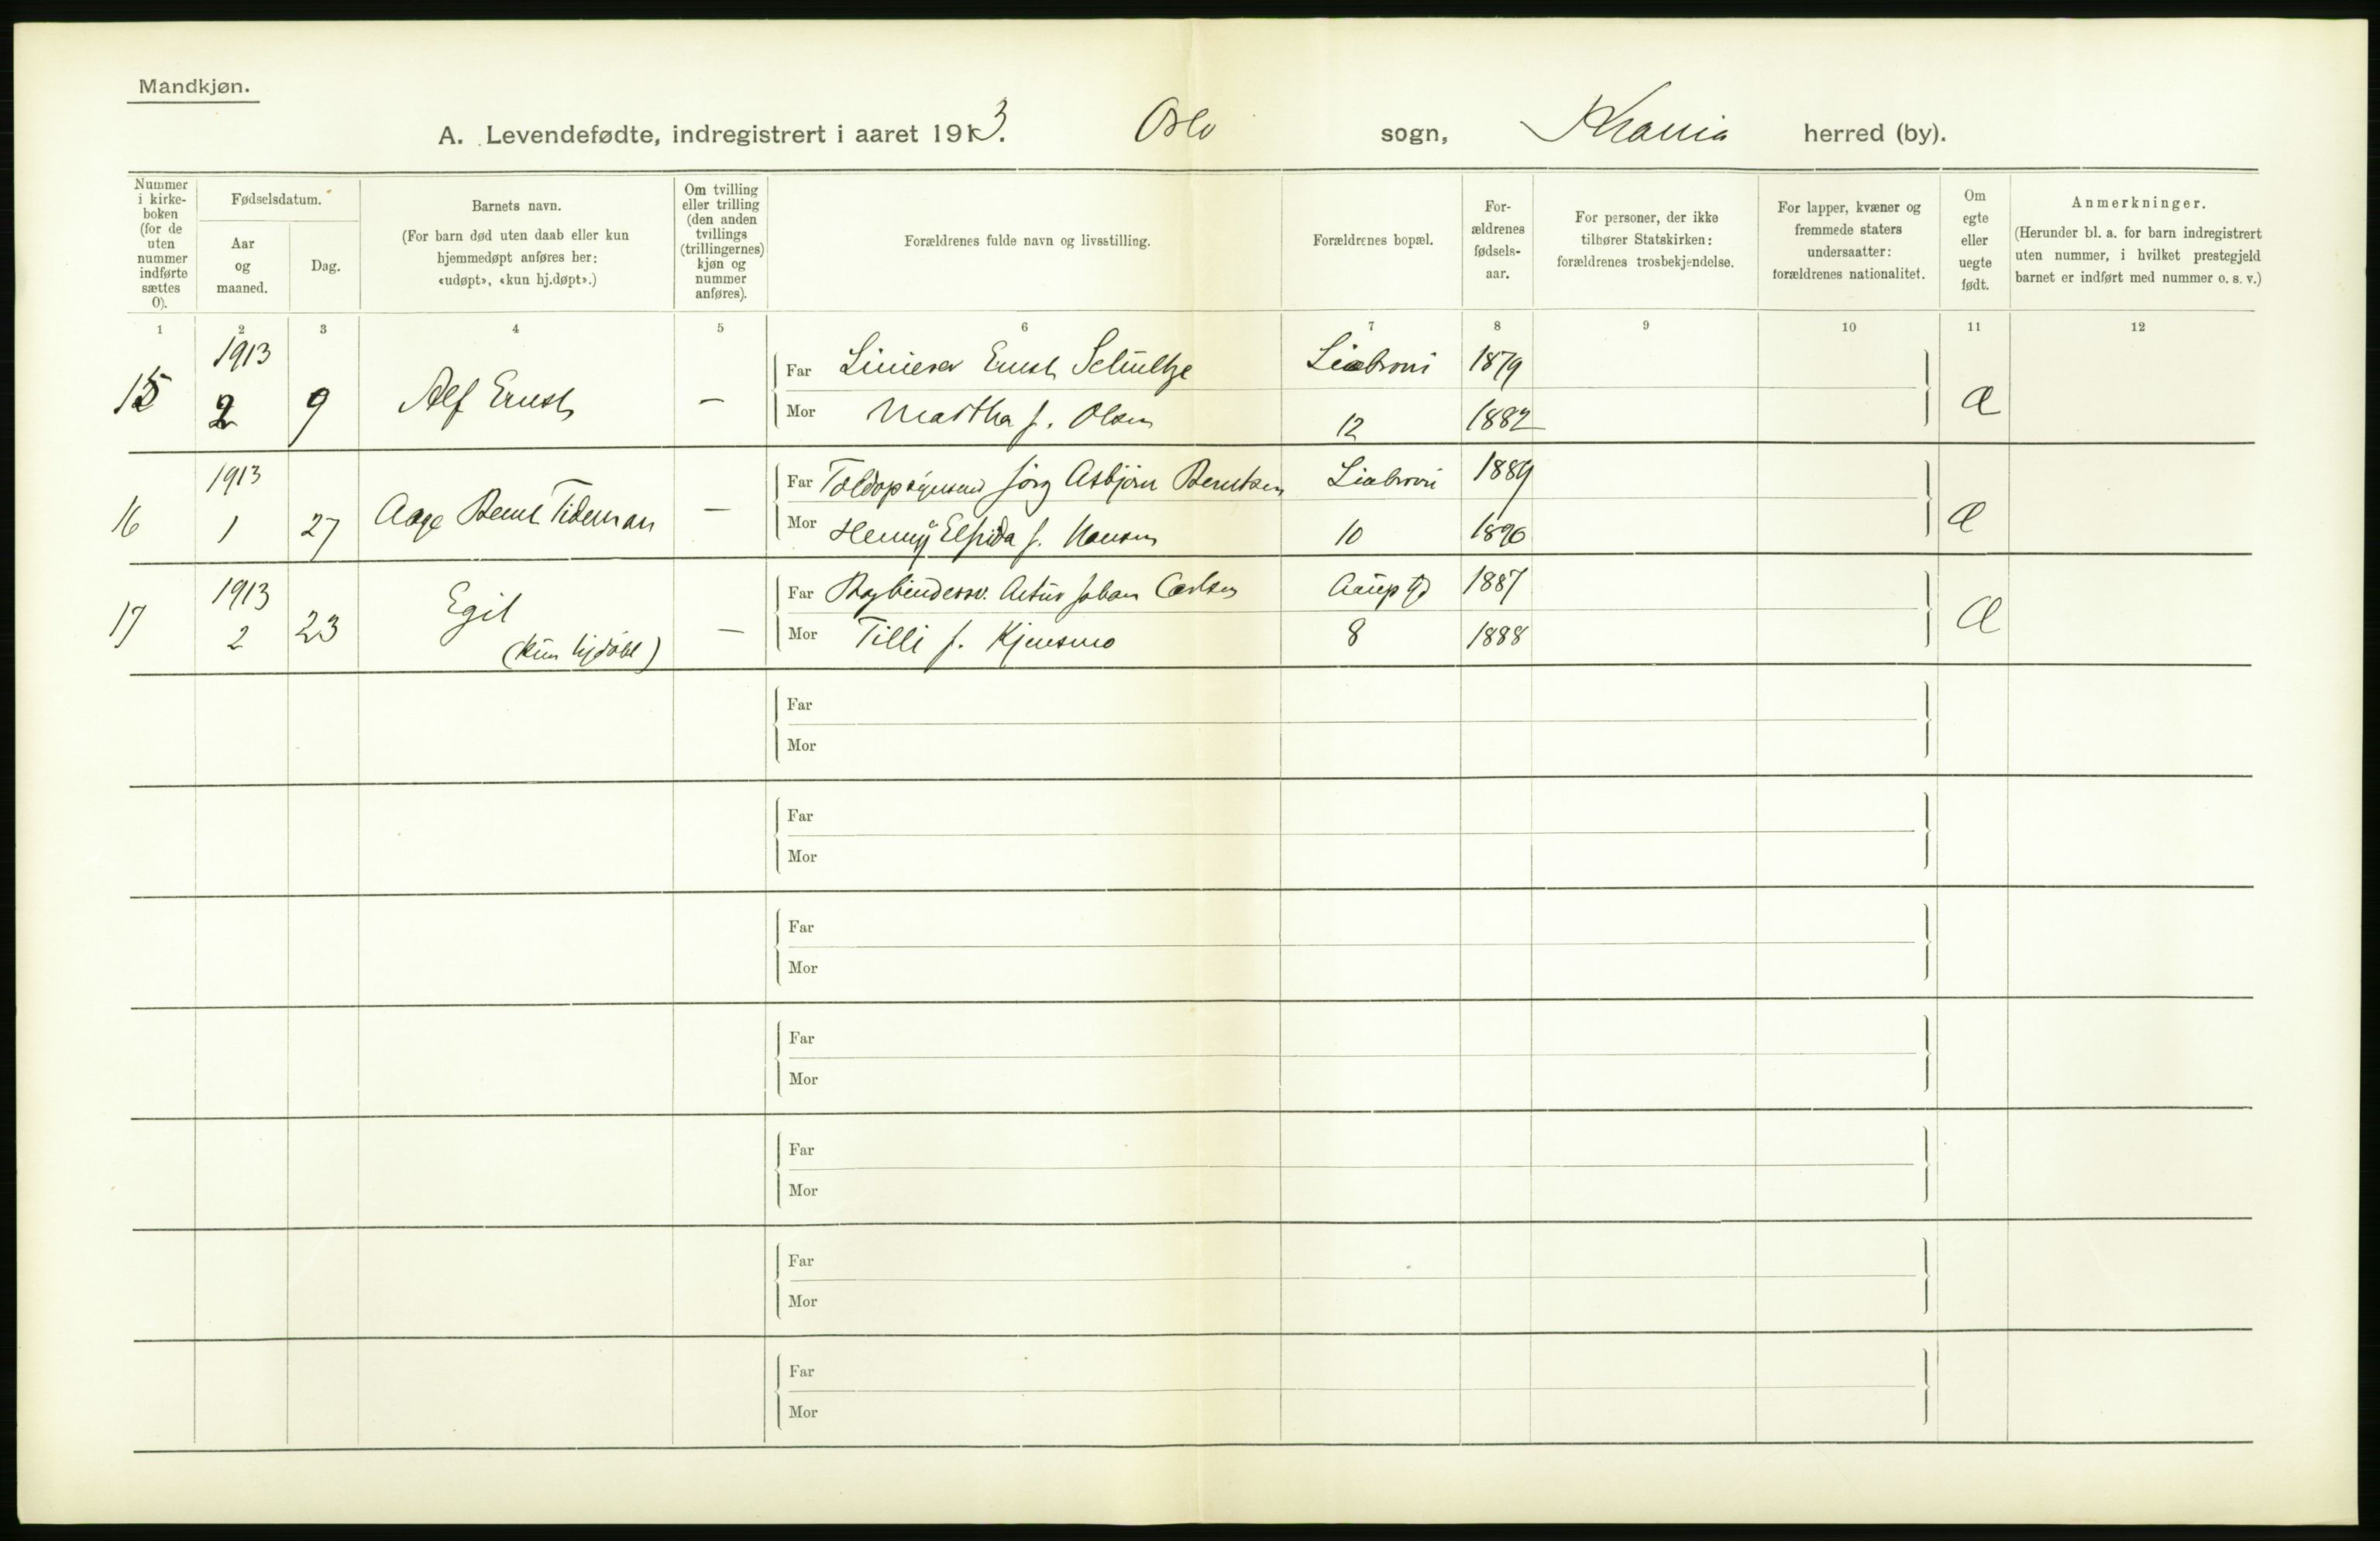 Mandkjøn.
A. Levendefødte, indregistrert i aaret 1913. Oslo sogn, Krania herred (by).
Nummer i kirke-boken (for de uten nummer indførte sættes 0).
Fødselsdatum.
Aar og maaned.
Dag.
Barnets navn.
(For barn død uten daab eller kun hjemmedøpt anføres her: «udøpt», «kun hj.døpt».)
Om tvilling eller trilling (den anden tvillings (trillingernes) kjøn og nummer anføres).
Forældrenes fulde navn og livsstilling.
Forældrenes bopæl.
For-ældrenes fødsels-aar.
For personer, der ikke tilhører Statskirken: forældrenes trosbekjendelse.
For lapper, kvæner og fremmede staters undersaatter: forældrenes nationalitet.
Om egte eller uegte født.
Anmerkninger.
(Herunder bl. a. for barn indregistrert uten nummer, i hvilket prestegjeld barnet er indført med nummer o. s. v.)
1 2 3 4 5 6 7 8 9 10 11 12
15 1913 2 9 Alf Ernst —
Far Linierer Ernst Schultze Liabrovi 1879
Mor Martha f. Olsen 12 1882 Æ
16 1913 1 27 Aage Bernt Tideman —
Far Toldopsynsmd Jörg Asbjørn Berntsen Liabrovi 1889
Mor Henny Elfrida f. Hansen 10 1890 Æ
17 1913 2 23 Egil (kun hjdöbt) —
Far Artur Johan Carlsen 1887
Mor Tilli f. Kjensmo 8 1888 Æ
Far
Mor
Far
Mor
Far
Mor
Far
Mor
Far
Mor
Far
Mor
Far
Mor